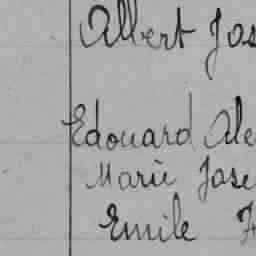 Albert Jos
Edouard Ale
Marie Jose
Emile F